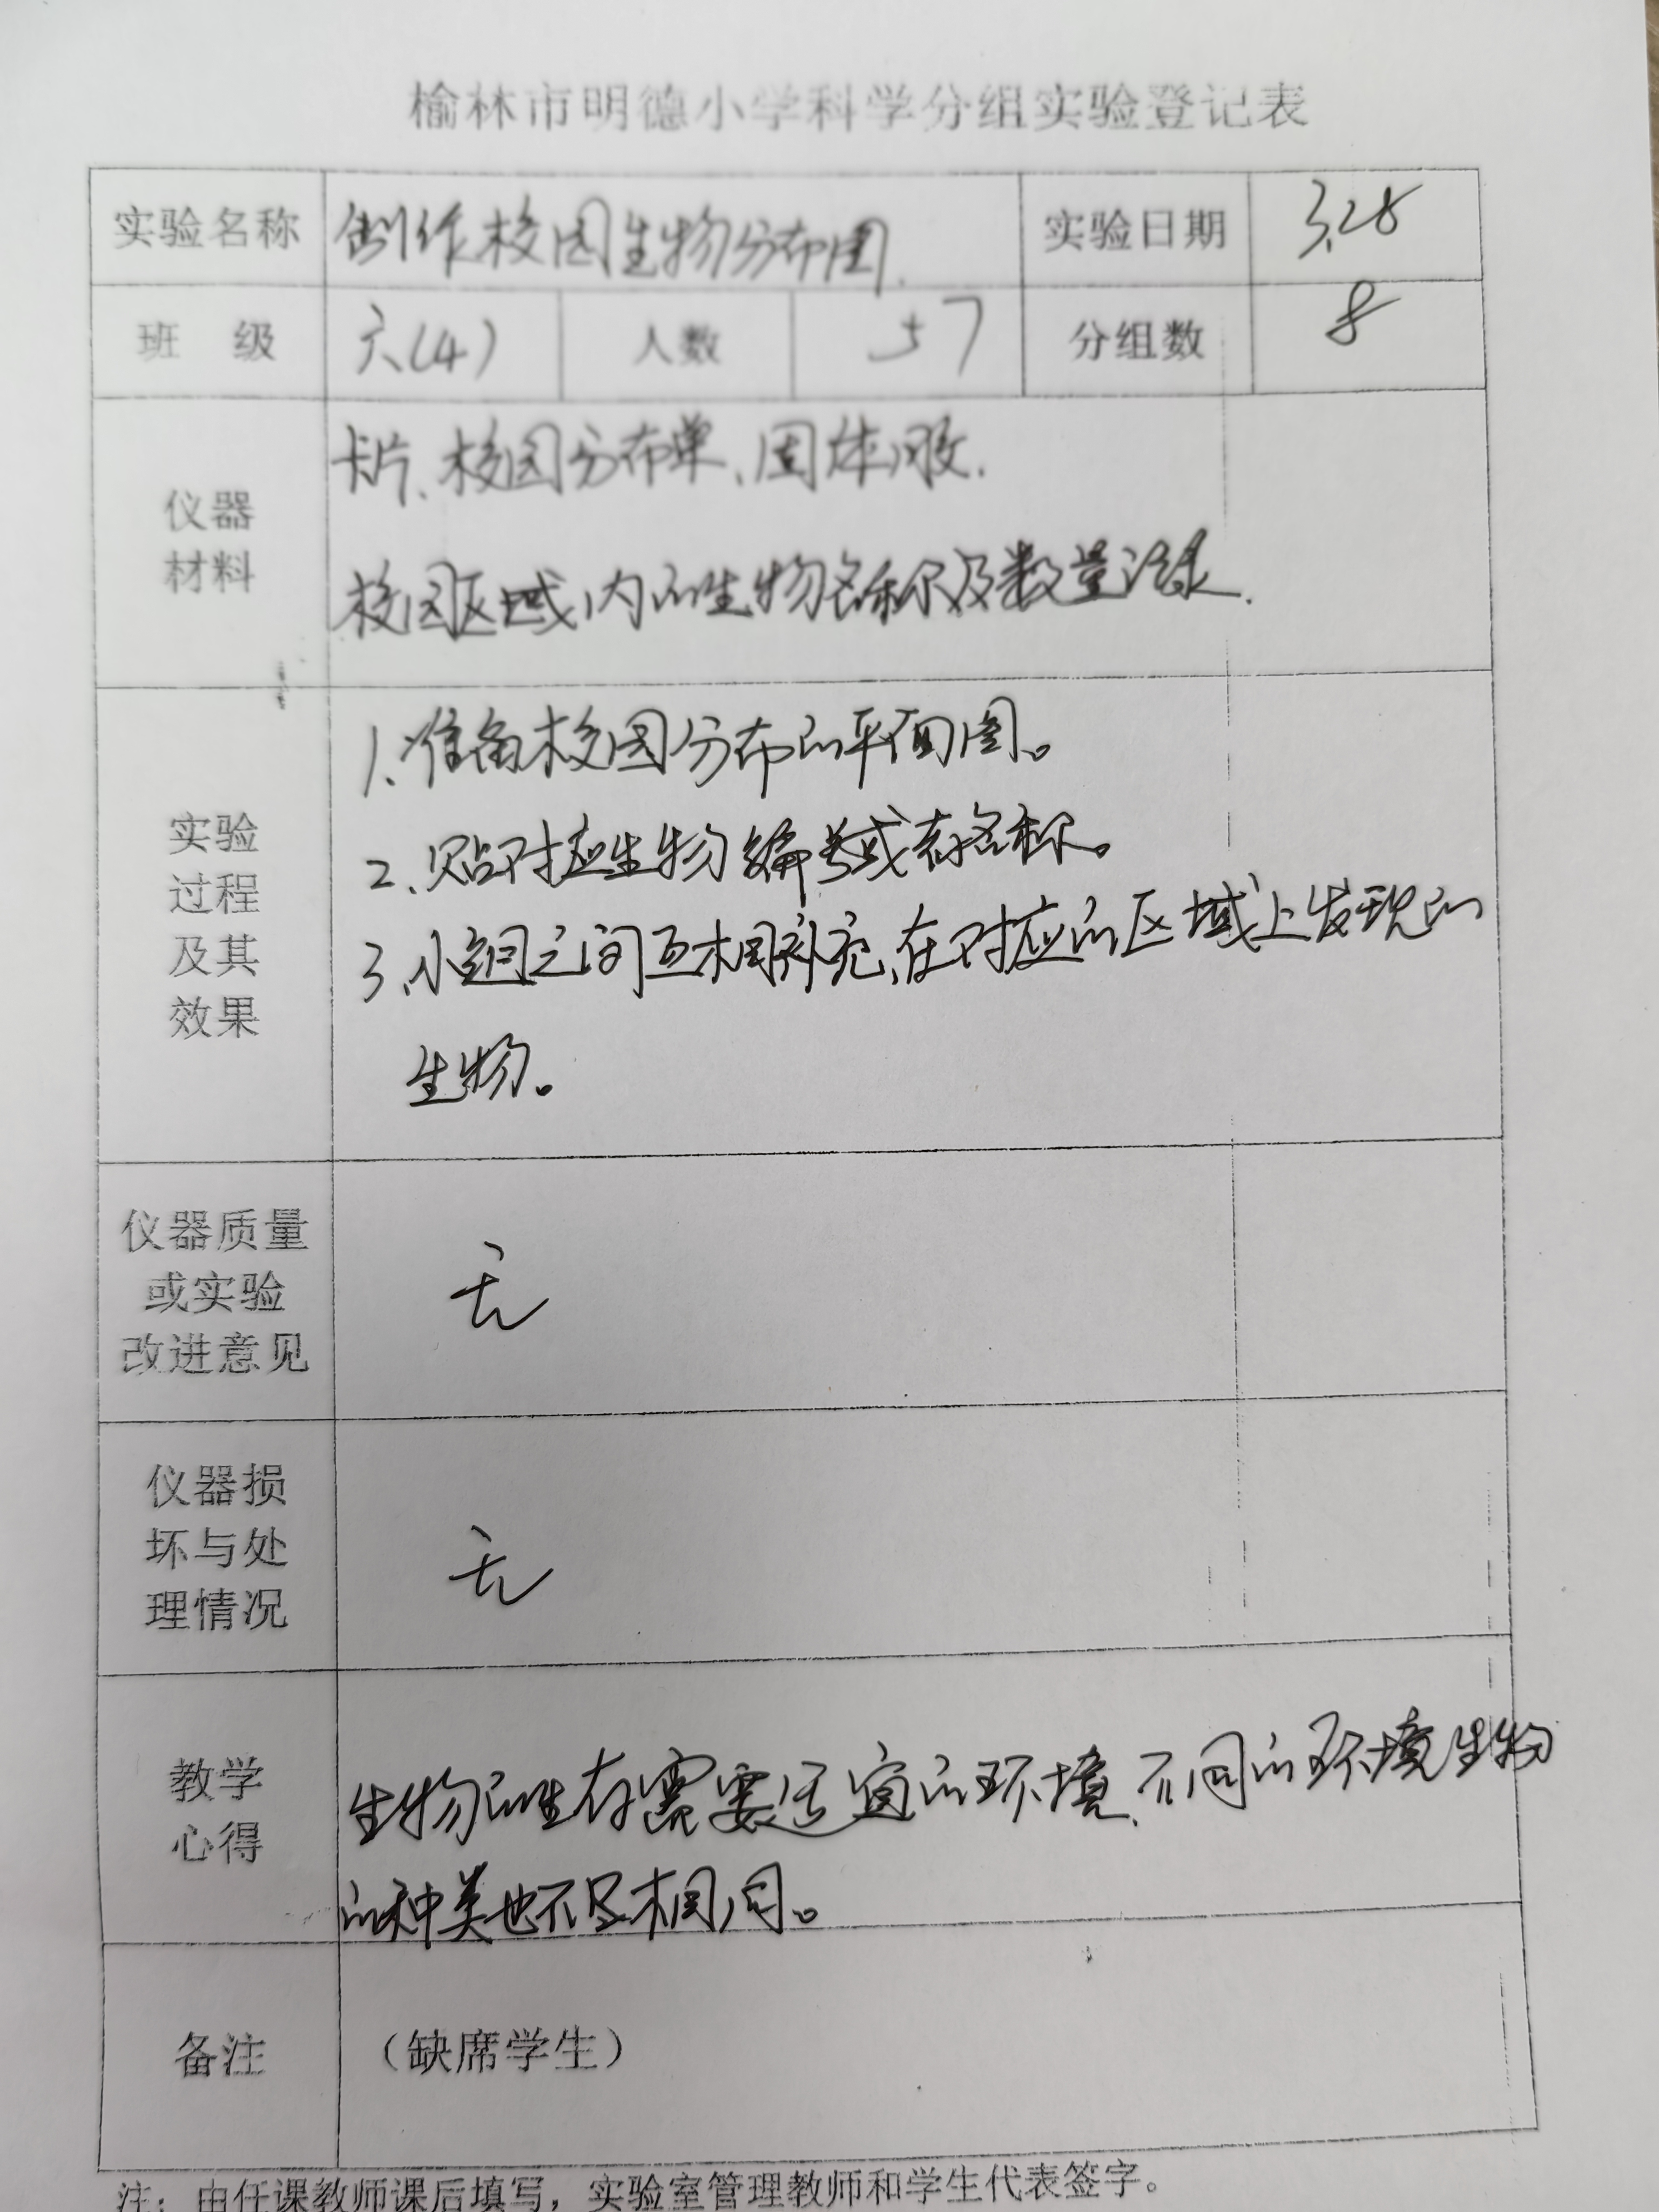 榆林市明德小学科学分组实验登记表
实验名称 制作校园生物分布图. 实验日期 3.28
班 级 六(4) 人数 57 分组数 8
仪器
材料
卡片、校园分布单、固体胶.
校园区域内的生物名称及数量记录.
实验
过程
及其
效果
1.准备校园分布的平面图。
2、贴对应生物编号或者名称。
3、小组之间互相补充,在对应的区域上发现的
生物。
仪器质量
或实验
改进意见
无
仪器损
坏与处
理情况
无
教学
心得
生物的生存需要适宜的环境、不同的环境生物
的种类也不尽相同。
备注 （缺席学生）
注：由任课教师课后填写，实验室管理教师和学生代表签字。